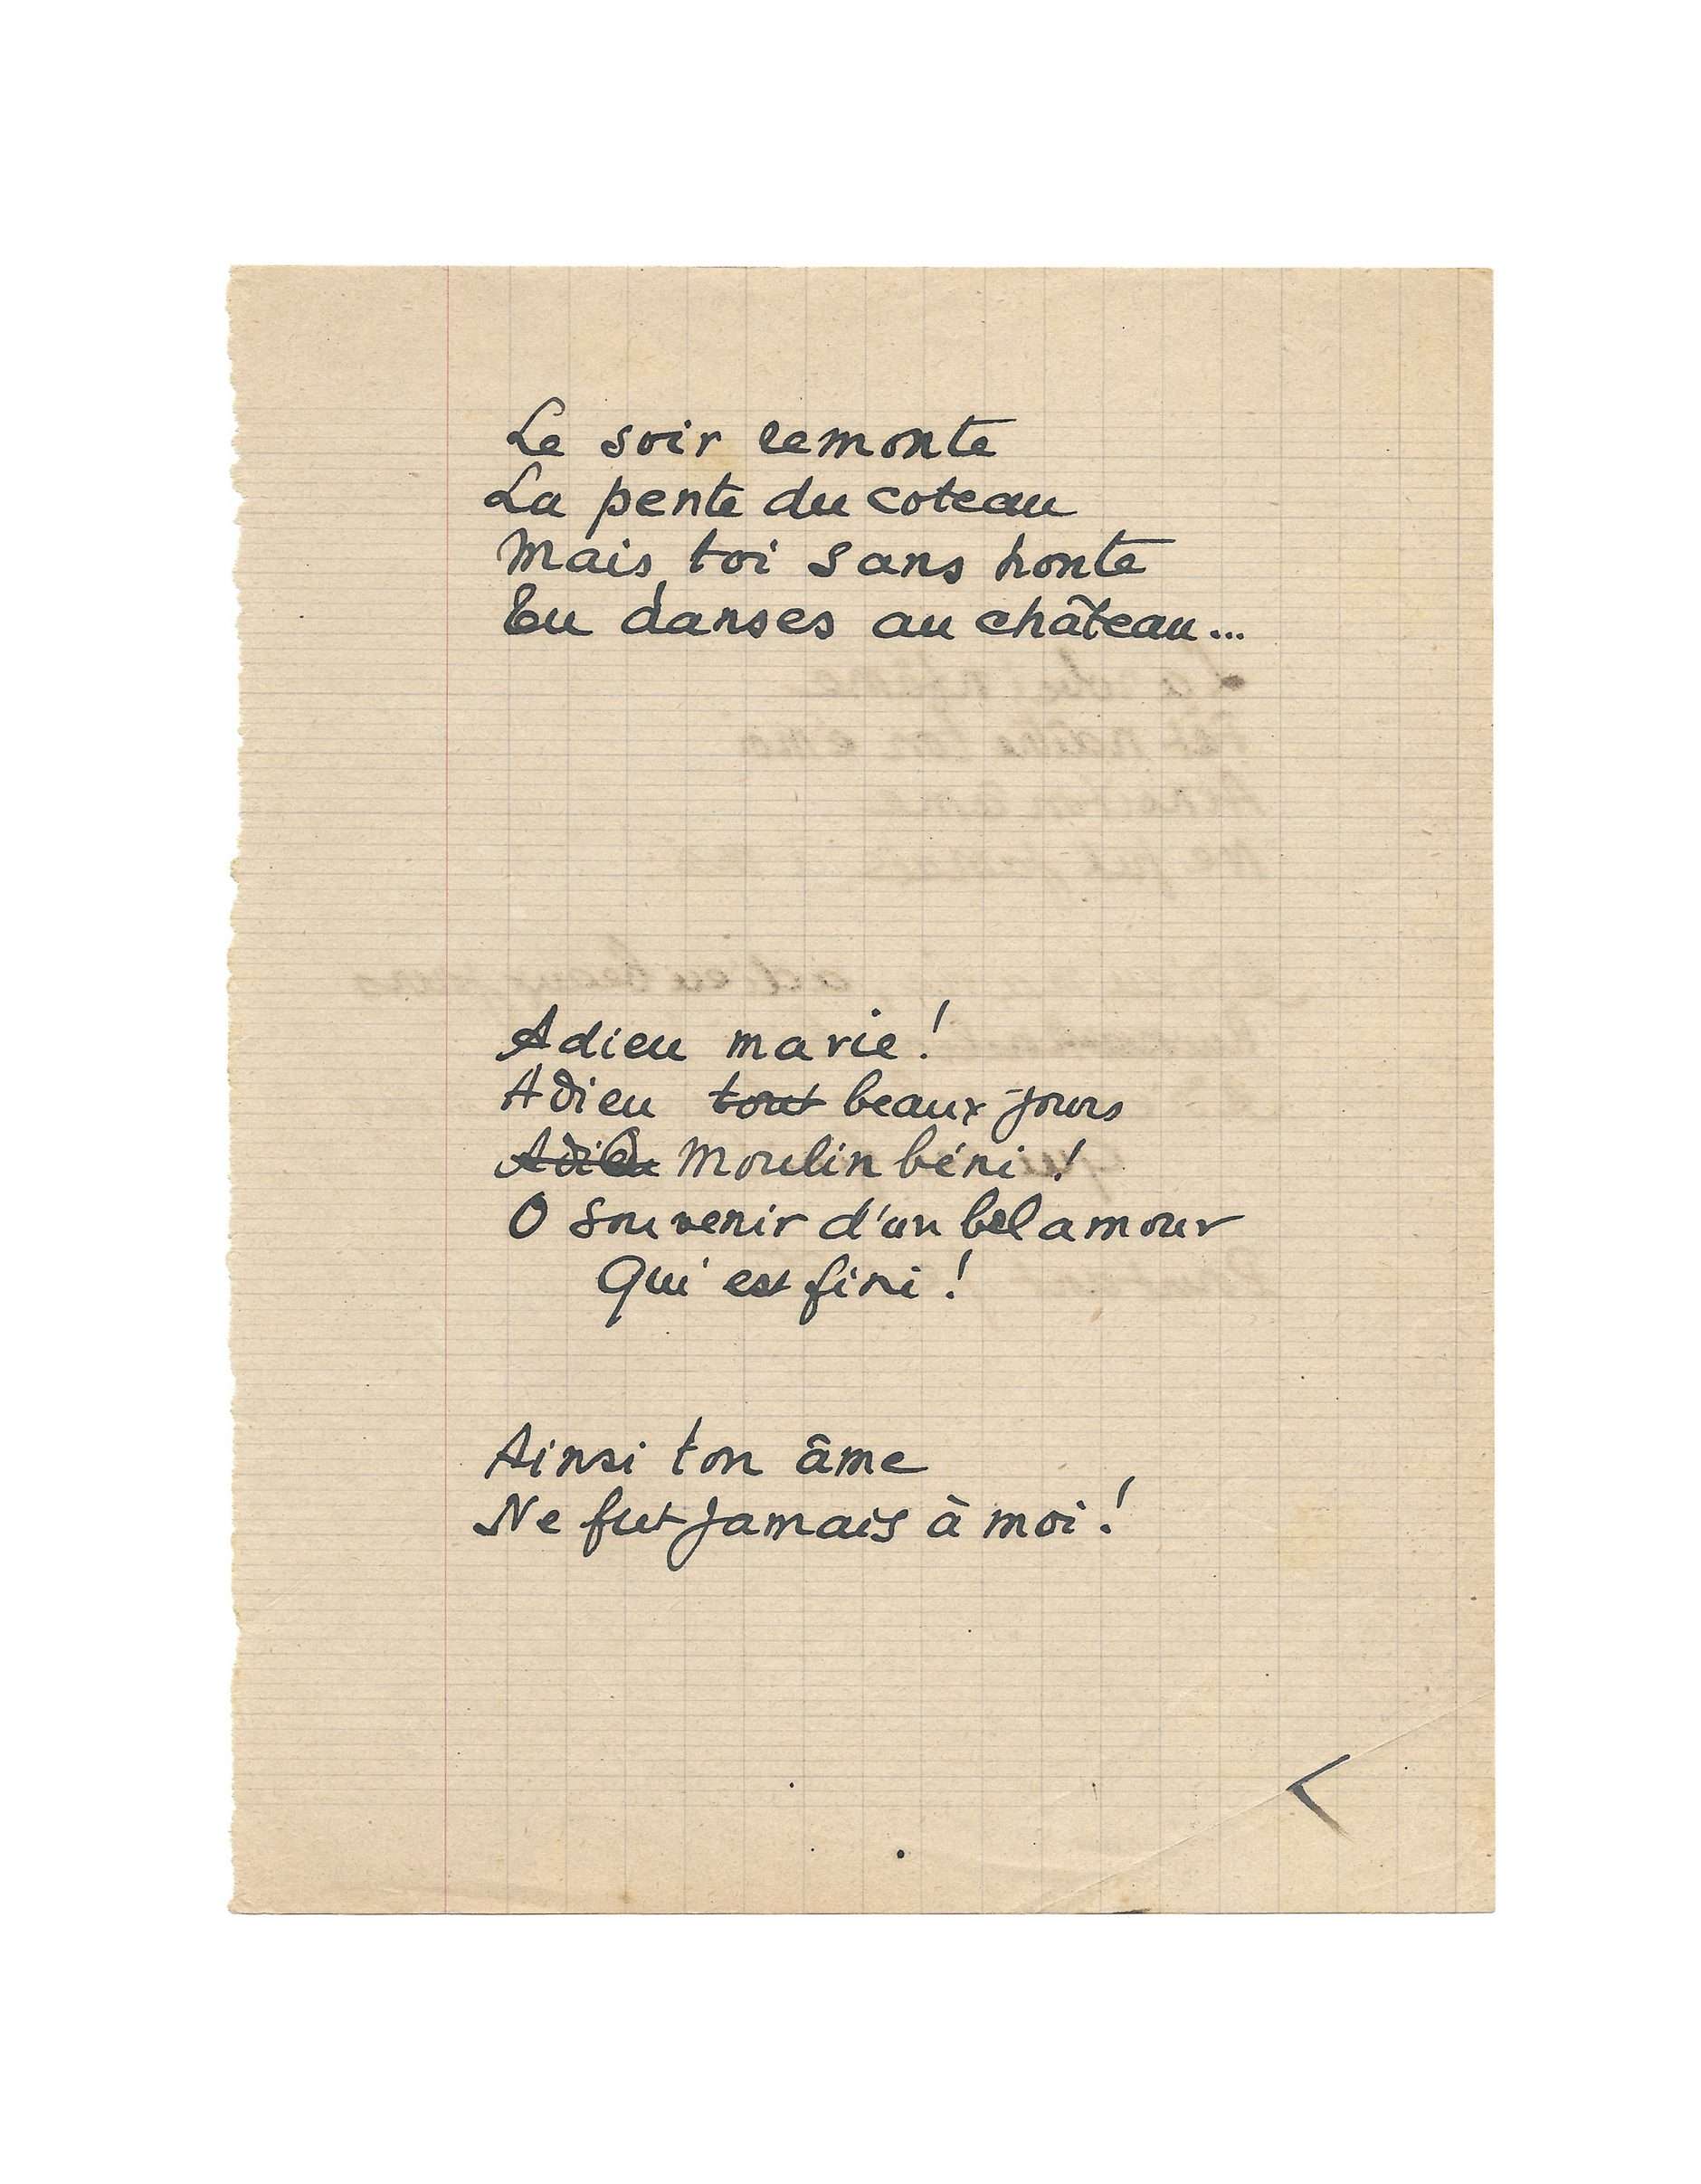 Le soir remonte
La pente du coteau
Mais toi sans honte
Tu danses au château...
Adieu marie !
Adieu tout beaux jours
Adieu Moulin béni !
O souvenir d'un bel amour
Qui est fini !
Ainsi ton âme
Ne fut jamais à moi !